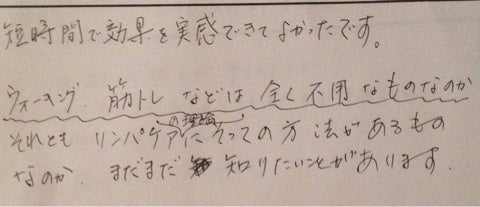 短時間で効果を実感できてよかったです。
ウォーキング、筋トレ などは 全く 不用 なものなのか
それとも リンパケアの理論にそっての 方法が あるもの
なのか、まだまだ 知りたいことがあります。